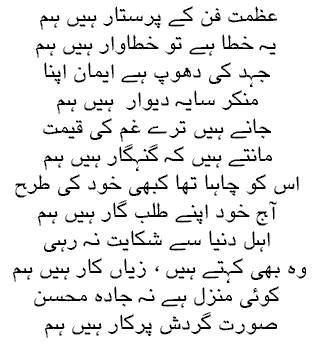 عظمت فن کے پرستار ہیں ہم
یہ خطا ہے تو خطاوار ہیں ہم
جہد کی دھوپ ہے ایمان اپنا
منکر سایہ دیوار ہیں ہم
جانے ہیں ترے غم کی قیمت
مانتے ہیں کہ گنہگار ہیں ہم
اس کو چاہا تھا کبھی خود کی طرح
آج خود اپنے طلب گار ہیں ہم
اہل دنیا سے شکایت نہ رہی
وہ بھی کہتے ہیں ، زیاں کار ہیں ہم
کوئی منزل ہے نہ جادہ محسن
صورت گردش پرکار ہیں ہم